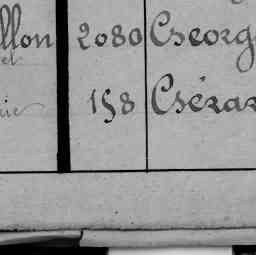 llon 2080 George
et
rie 158 Gérar